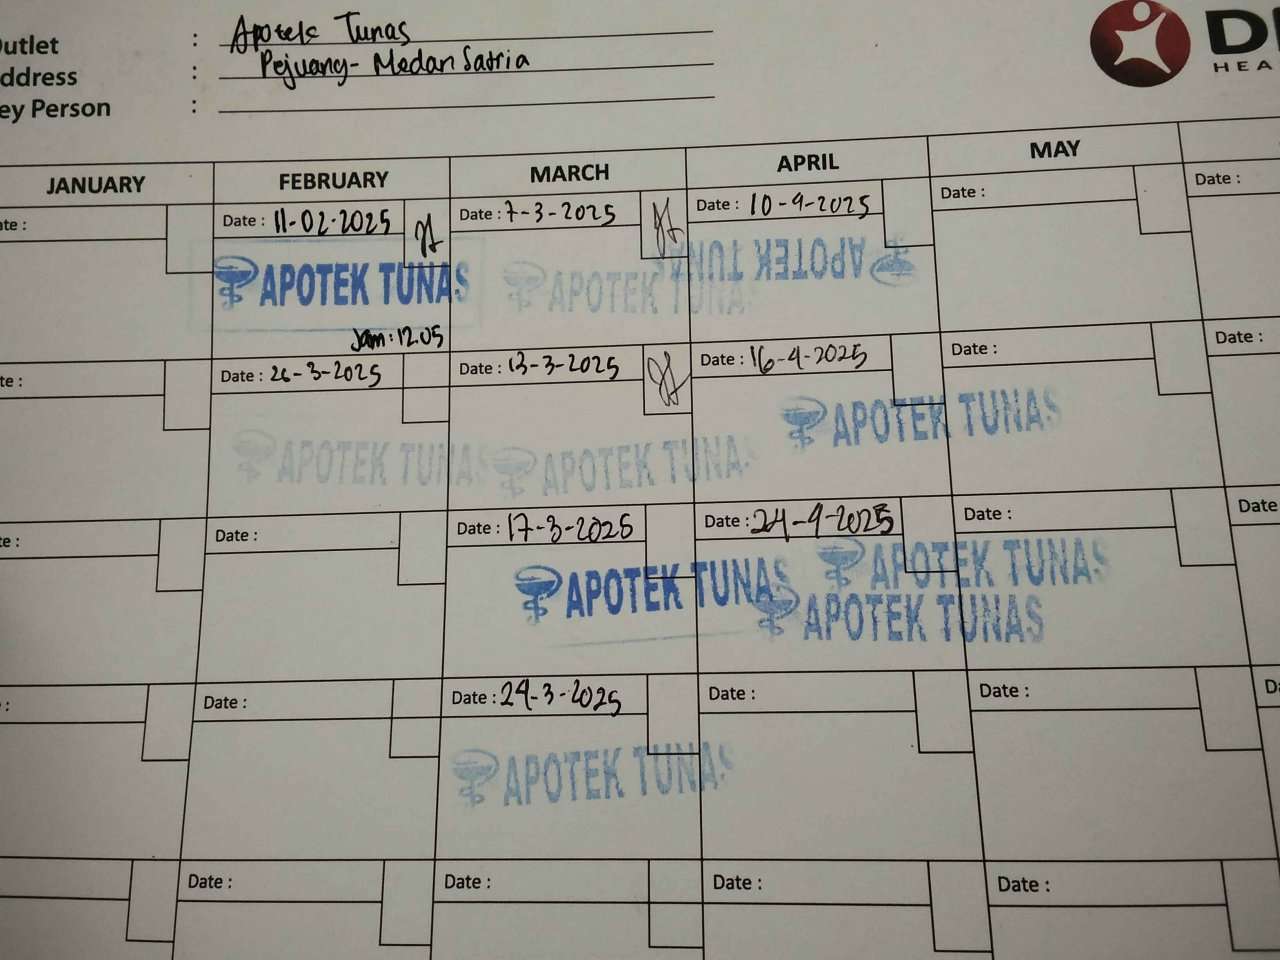 outlet : Apotek Tunas
ddress : Pejuang - Medan Satria
ey Person :
DI
HEA
JANUARY FEBRUARY MARCH APRIL MAY
te : Date : 11-02-2025 Date : 7-3-2025 Date : 10-4-2025 Date : Date :
APOTEK TUNAS APOTEK TUNAS APOTEK TUNAS
Jam : 12.05
te : Date : 26-3-2025 Date : 13-3-2025 Date : 16-4-2025 Date : Date :
APOTEK TUNAS APOTEK TUNAS APOTEK TUNAS
te : Date : Date : 17-3-2025 Date : 24-4-2025 Date : Date
APOTEK TUNAS APOTEK TUNAS
APOTEK TUNAS
: Date : Date : 24-3-2025 Date : Date : Da
APOTEK TUNAS
Date : Date : Date : Date :